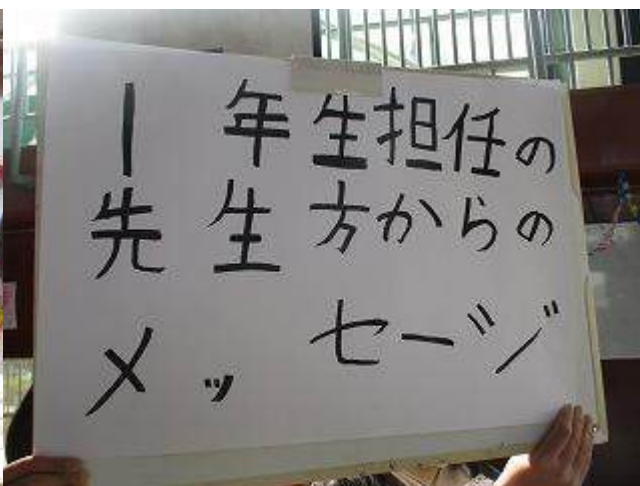 1年生担任の
先生方からの
メッセージ